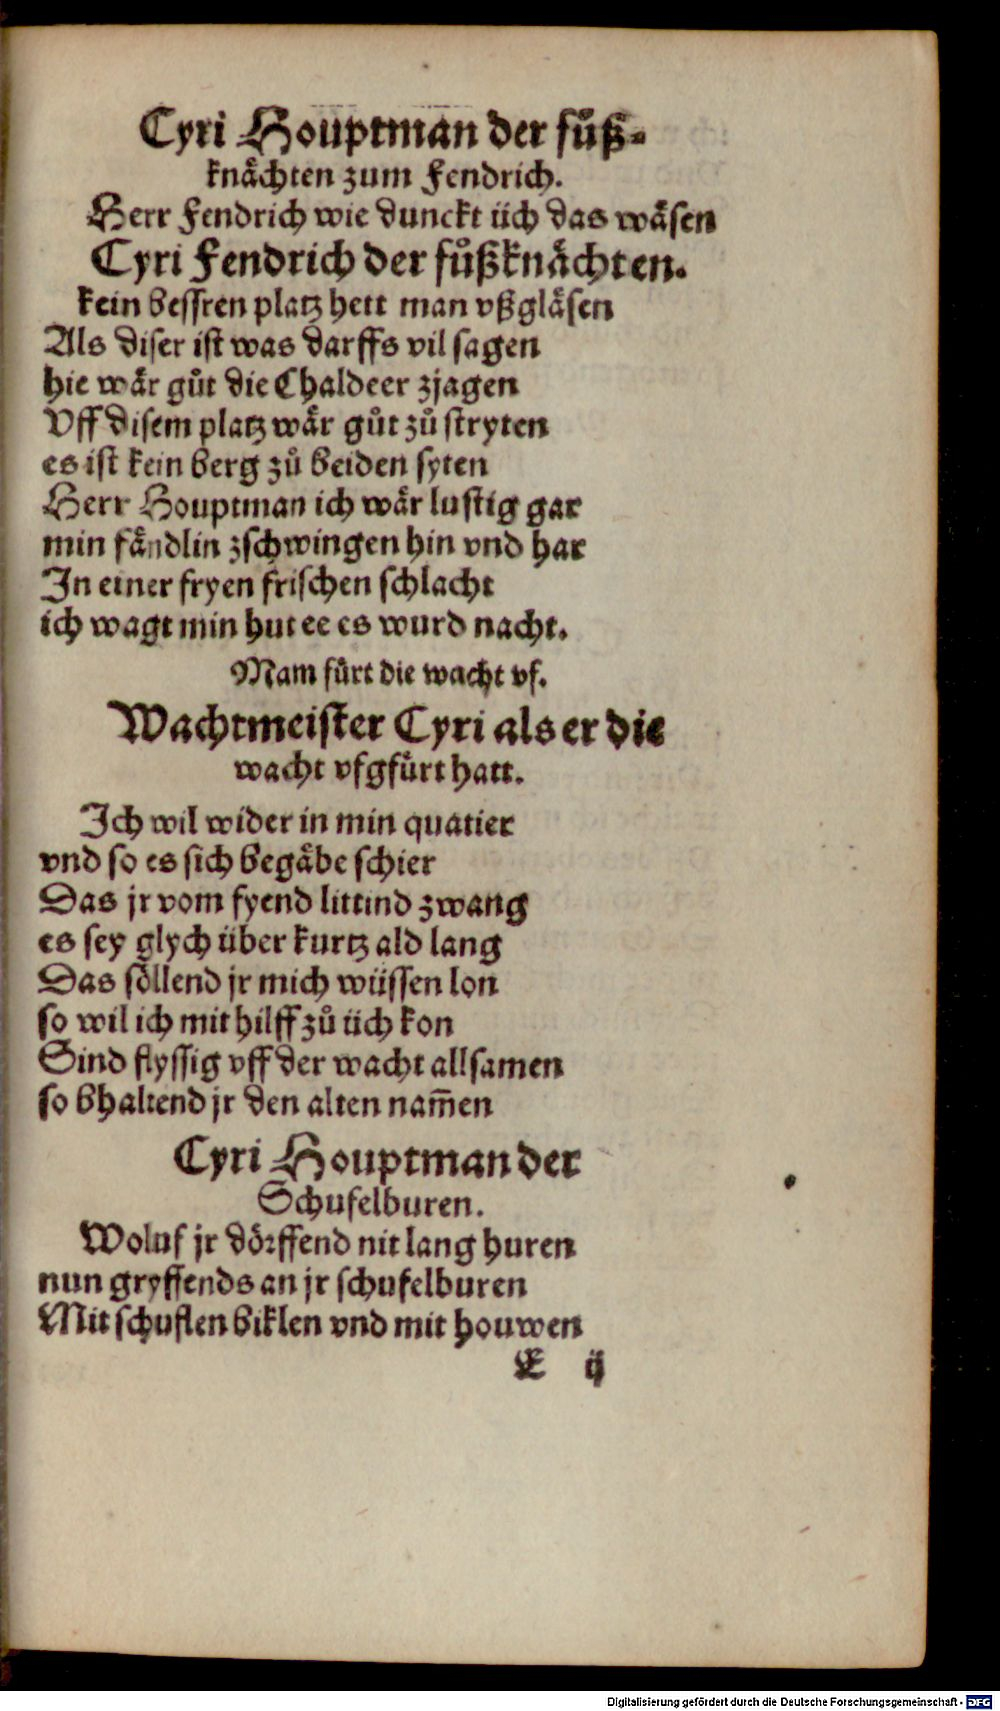 Cyri Houptman der fůß-
knächten zum Fendrich.
Herr Fendrich wie dunckt üch das wäsen
Cyri Fendrich der fůßknächten.
kein bessren platz hett man vßgläsen
Als diser ist was darffs vil sagen
hie wär gůt die Chaldeer zjagen
Vff disem platz wär gůt zů stryten
es ist kein berg zů beiden syten
Herr Houptman ich wär lustig gar
min fändlin zschwingen hin vnd har
In einer fryen frischen schlacht
ich wagt min hut ee es wurd nacht.
Mam fürt die wacht vf.
Wachtmeister Cyri als er die
wacht vfgfürt hatt.
Ich wil wider in min quatier
vnd so es sich begäbe schier
Das jr vom fyend littind zwang
es sey glych über kurtz ald lang
Das söllend jr mich wüssen lon
so wil ich mit hilff zů üch kon
Sind flyssig vff der wacht allsamen
so bhaltend jr den alten nam̄en
Cyri Houptman der
Schufelburen.
Woluf jr dörffend nit lang huren
nun gryffends an jr schufelburen
Mit schuflen biklen vnd mit houwen
E ij
Digitalisierung gefördert durch die Deutsche Forschungsgemeinschaft - DFG